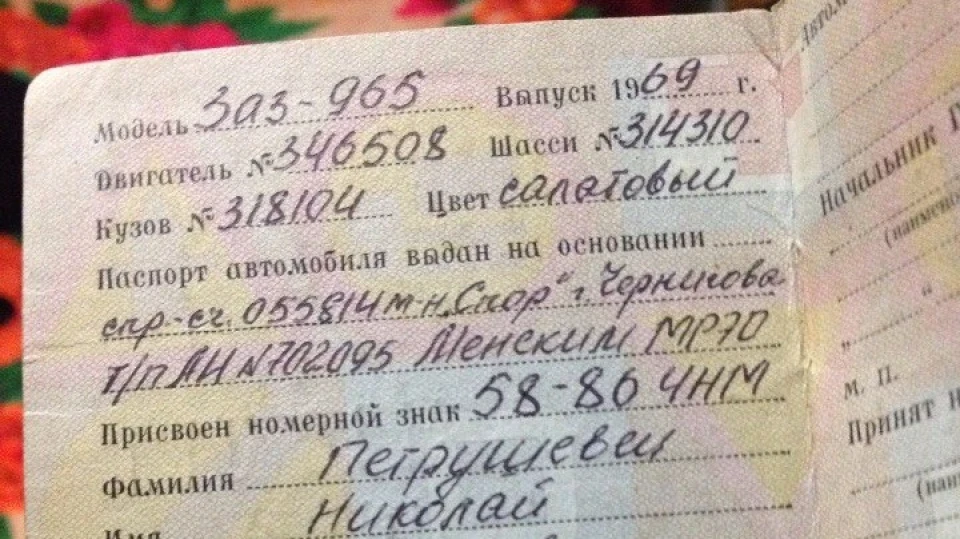 Модель ЗАЗ-965 Выпуск 1969 г.
Двигатель № 346508 Шасси № 314310
Кузов № 318104 Цвет салатовый
Паспорт автомобиля выдан на основании
спр-сч. 055814 м-н „Спор" г. Чернигова
т/п АН N702095 Менским МРЭО
Присвоен номерной знак 58-86 ЧНМ
Фамилия Петрушевец
Имя Николай
Автом
Начальник Г
(наимено
м. п.
Принят н
(наи